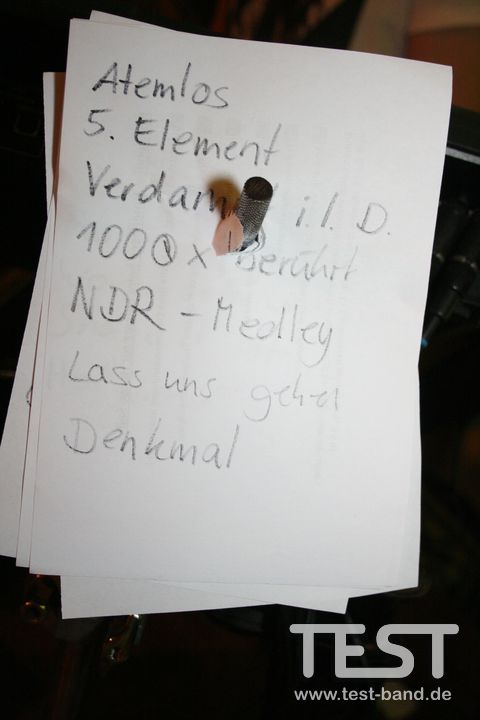 Atemlos
5. Element
i.l. D.
1000 x berührt
NDR - Medley
Lass uns gehen
Denkmal
TEST
www.test-band.de